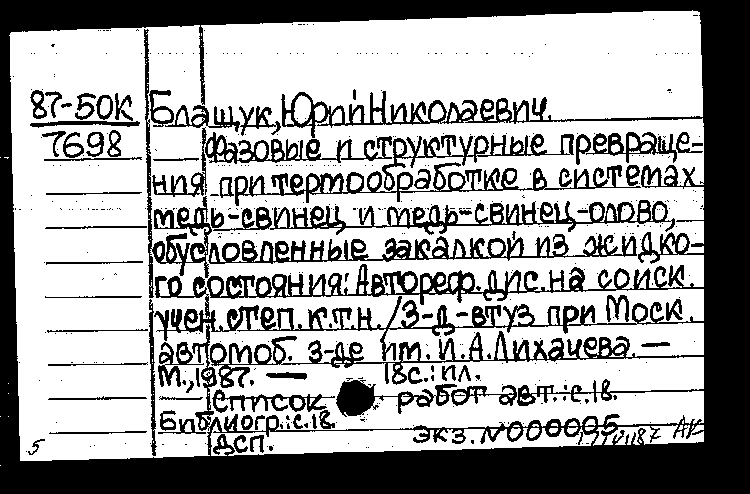 87-50К Блащук, Юрий Николаевич.
7698 Фазовые и структурные превраще-
ния при термообработке в системах
медь-свинец и медь-свинец-олово,
обусловленные закалкой из жидко-
го состояния: Автореф. дис. на соиск.
учен. степ. к.т.н. / З-д-втуз при Моск.
автомоб. з-де им. И.А. Лихачева. —
М., 1987. — 18с.: ил.
Список работ авт.: с. 18.
Библиогр.: с. 18.
ДСП. экз. №000005
5